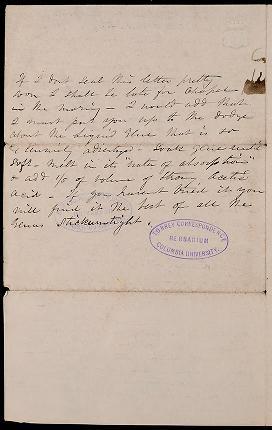 If I dont seal this letter pretty
soon I shall be late for Chapel
in the morning – I would add that
I must put you up to the dodge
about the Liquid Glue that is so
advertised – Soak glue until
soft – melt in its "water of absorption"
& add 1/8 of volume of strong Acetic
Acid – If you havent tried it you
will find it the best of all the
Genus Stickumtight.
TORREY CORRESPONDENCE
HERBARIUM
COLUMBIA UNIVERSITY.